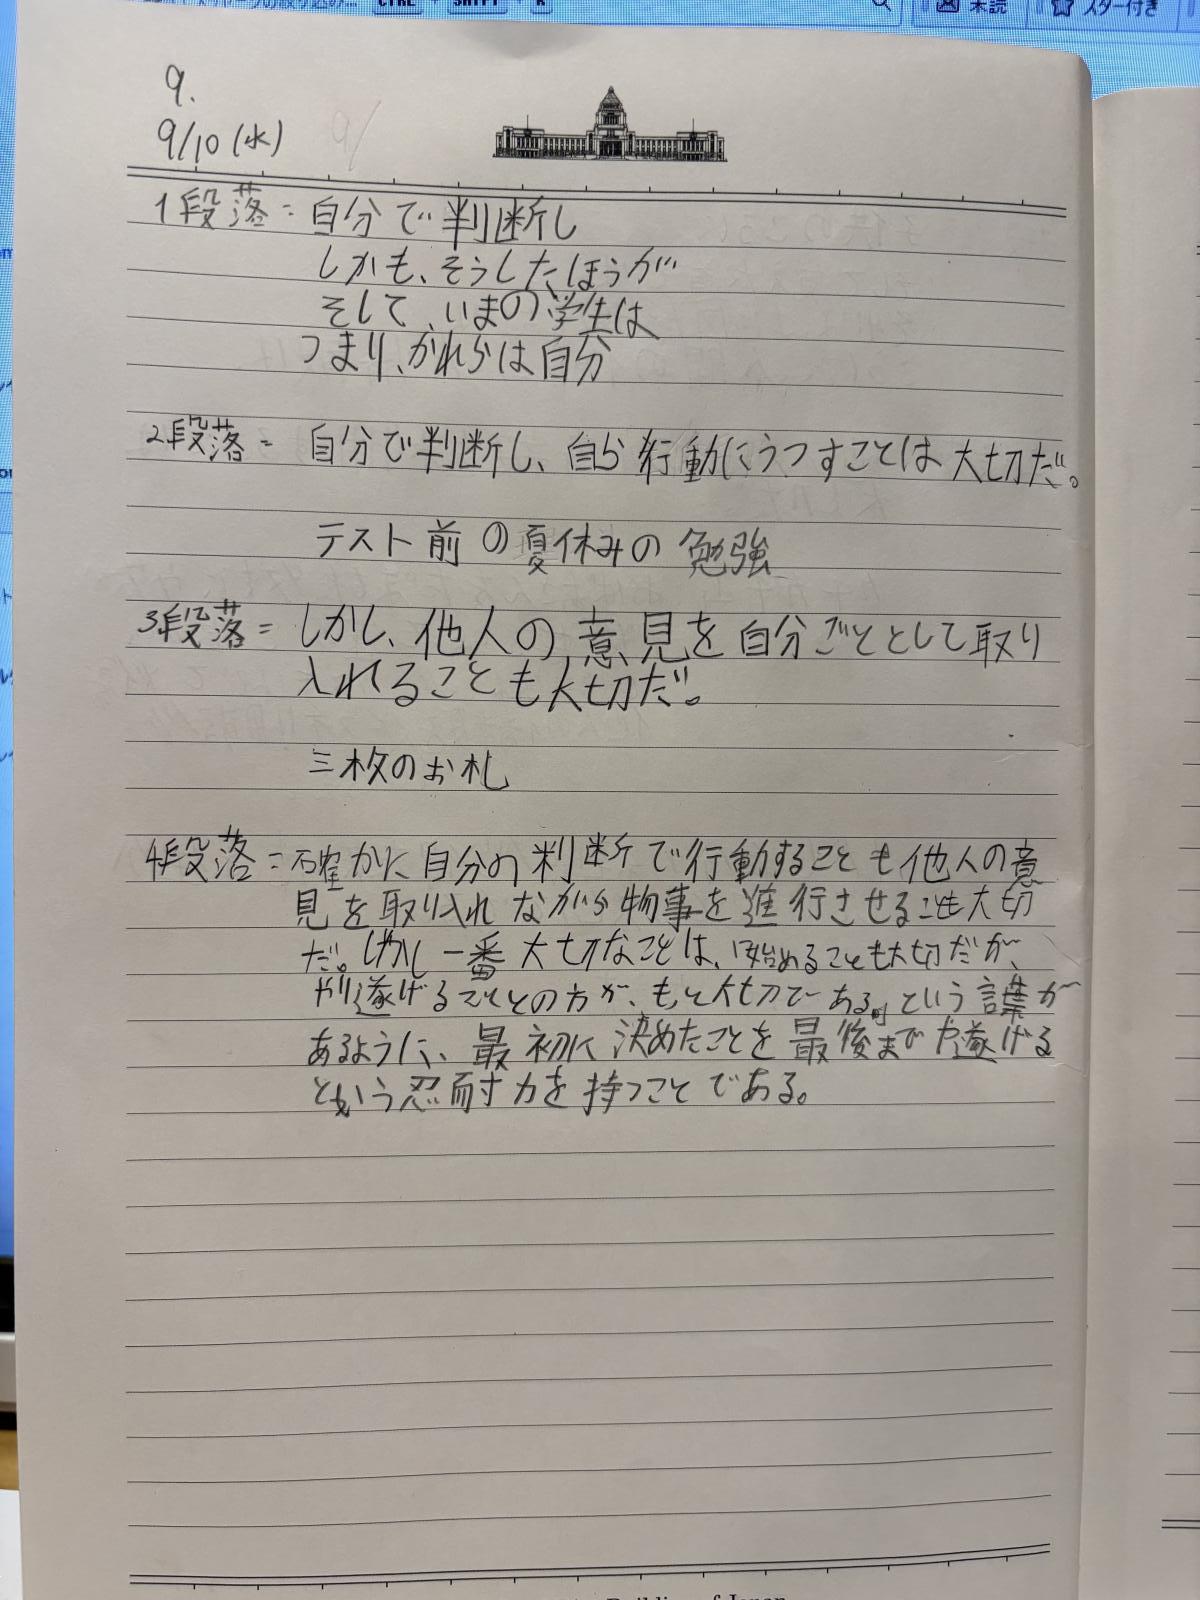 CTRL + SHIFT + K
未読
スター付き
9.
9/10(水)
1段落=自分で判断し
しかも、そうしたほうが
そして、いまの学生は
つまり、かれらは自分
2段落=自分で判断し、自ら行動にうつすことは大切だ。
テスト前の夏休みの勉強
3段落=しかし、他人の意見を自分ごととして取り
入れることも大切だ。
三枚のお札
4段落=確かに自分の判断で行動することも他人の意
見を取り入れながら物事を進行させることも大切
だ。しかし一番大切なことは、「始めることも大切だが、
やり遂げることの方が、もっと大切である。」という言葉が
あるように、最初に決めたことを最後までやり遂げる
という忍耐力を持つことである。